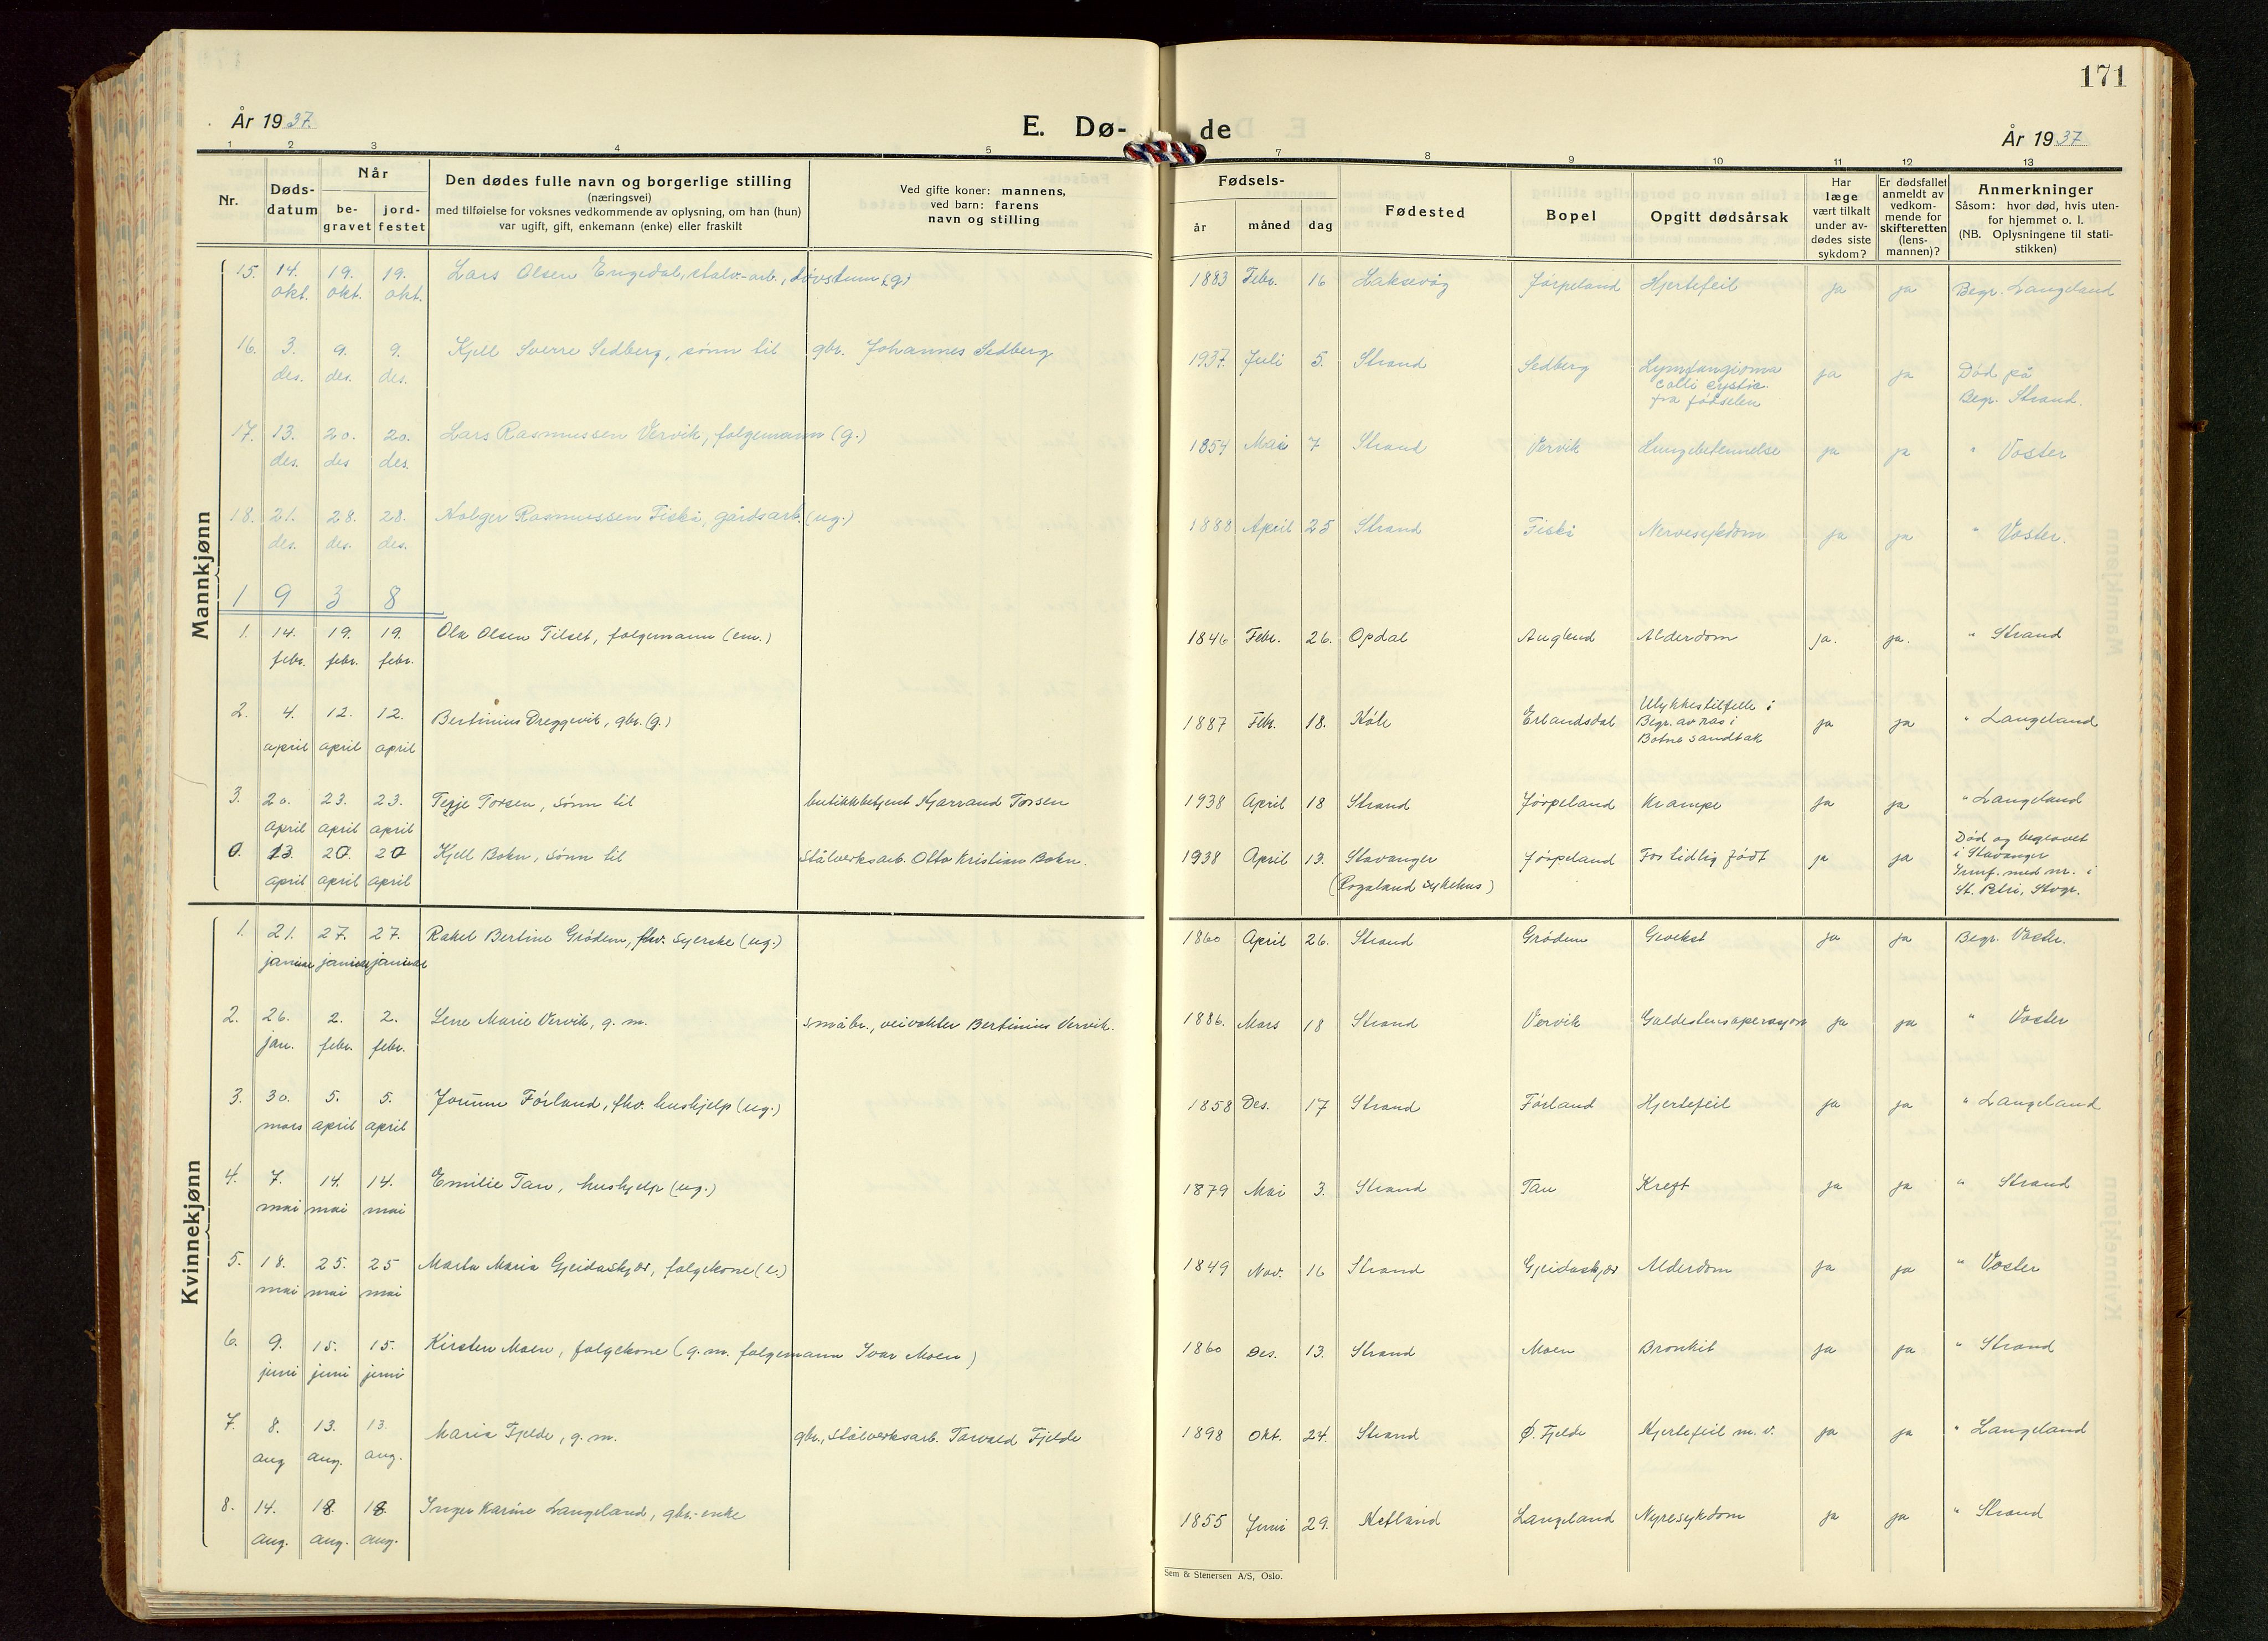 171
År 1937.
E. Dø-
de
År 1937
1 2 3 4 5 7 8 9 10 11 12 13
Nr.
Døds-
datum
Når
be-
gravet
jord-
festet
Den dødes fulle navn og borgerlige stilling
(næringsvei)
med tilføielse for voksnes vedkommende av oplysning, om han (hun)
var ugift, gift, enkemann (enke) eller fraskilt
Ved gifte koner: mannens,
ved barn: farens
navn og stilling
Fødsels-
år måned dag
Fødested
Bopel
Opgitt dødsårsak
Har
læge
vært tilkalt
under av-
dødes siste
sykdom?
Er dødsfallet
anmeldt av
vedkom-
mende for
skifteretten
(lens-
mannen)?
Anmerkninger
Såsom: hvor død, hvis uten-
for hjemmet o. l.
(NB. Oplysningene til stati-
stikken)
Mannkjønn
15. 14. 19. 19. Lars Olsen Engedal, stalv.-arb., (g) 1883 Febr. 16 Laksevåg Jørpeland Hjertefeil ja ja Begr. Langeland
okt. okt. okt.
16. 3. 9. 9. Kjell Sverre Sedberg, sønn til gbr. Johannes Sedberg 1937. Juli 5. Strand Sedberg Lymfangioma ja ja Død på
des. des. des. colli cystic. Begr. Strand.
fra fødselen
17. 13. 20. 20. Lars Rasmussen Vervik, folgemann (g.) 1854 Mai 7 Strand Vervik Lungebetennelse ja ja " Voster
des. des des.
18. 21. 28. 28. Holger Rasmussen Fiskå, gårdsarb. (ug.) 1888 April 25 Strand Fiskå Nervesykdom ja ja " Voster.
des. des. des.
1 9 3 8
1. 14. 19. 19. Ola Olsen Tilset, folgemann (em.) 1846 Febr. 26. Opdal Auglend Alderdom ja. ja. " Strand
febr. febr. febr.
2. 4. 12. 12. Bertinius Dreggevik, gbr. (g.) 1887 Febr. 18. Høle Erlandsdal Ulykkestilfelle i ja ja " Langeland
april april april Begr. av ras i
Botne sandtak
3. 20. 23. 23. Terje Torsen, sønn til butikkbetjent Hjarrand Torsen 1938 April 18 Strand Jørpeland Krampe ja ja " Langeland
april april april
0. 13. 20. 20 Kjell Bokn, sønn til Stålverksarb. Otto Kristian Bokn. 1938 April 13. Stavanger Jørpeland For tidlig født ja ja Død og begravet
april april april (Rogaland sykehus) i Stavanger
med nr. i
St. Petri, Stvgr.
Kvinnekjønn
1. 21. 27. 27. Rakel Bertine Grödem, fhv. syerske (ug.) 1860 April 26. Strand Grödem Gevekst ja ja Begr. Voster.
januar januar januar
2. 26. 2. 2. Lene Marie Vervik, g. m. småbr., veivokter Bertinius Vervik. 1886. Mars 18 Strand Vervik Galdestensoperasjon ja ja " Voster
jan. febr. febr.
3. 30. 5. 5. Jorunn Förland, fhv. hushjelp (ug.) 1858 Des. 17 Strand Förland Hjertefeil ja ja " Langeland
mars april april
4. 7. 14. 14. Emilie Tau, hushjelp (ug.) 1879 Mai 3. Strand Tau Kreft ja ja " Strand
mai mai mai
5. 18. 25. 25 Marta Maria Gjeidaskjær, folgekone (e.) 1849 Nov. 16 Strand Gjeidaskjær Alderdom ja ja " Voster
mai mai mai
6. 9. 15. 15. Kirsten Moen, folgekone (g. m. folgemann Ivar Moen) 1860 Des. 13. Strand Moen Bronkit ja ja " Strand
juni juni juni
7. 8. 13. 13. Maria Fjelde, g. m. gbr., Stålverksarb. Torvald Fjelde 1898 Okt. 24. Strand Ø. Fjelde Hjertefeil m. v. ja ja " Langeland
aug aug. aug.
8. 14. 18. 18. Inger Karine Langeland, gbr.-enke 1855 Juni 29. Hetland Langeland Nyresykdom ja ja " Strand
aug. aug. aug.
Sem & Stenersen A/S, Oslo.